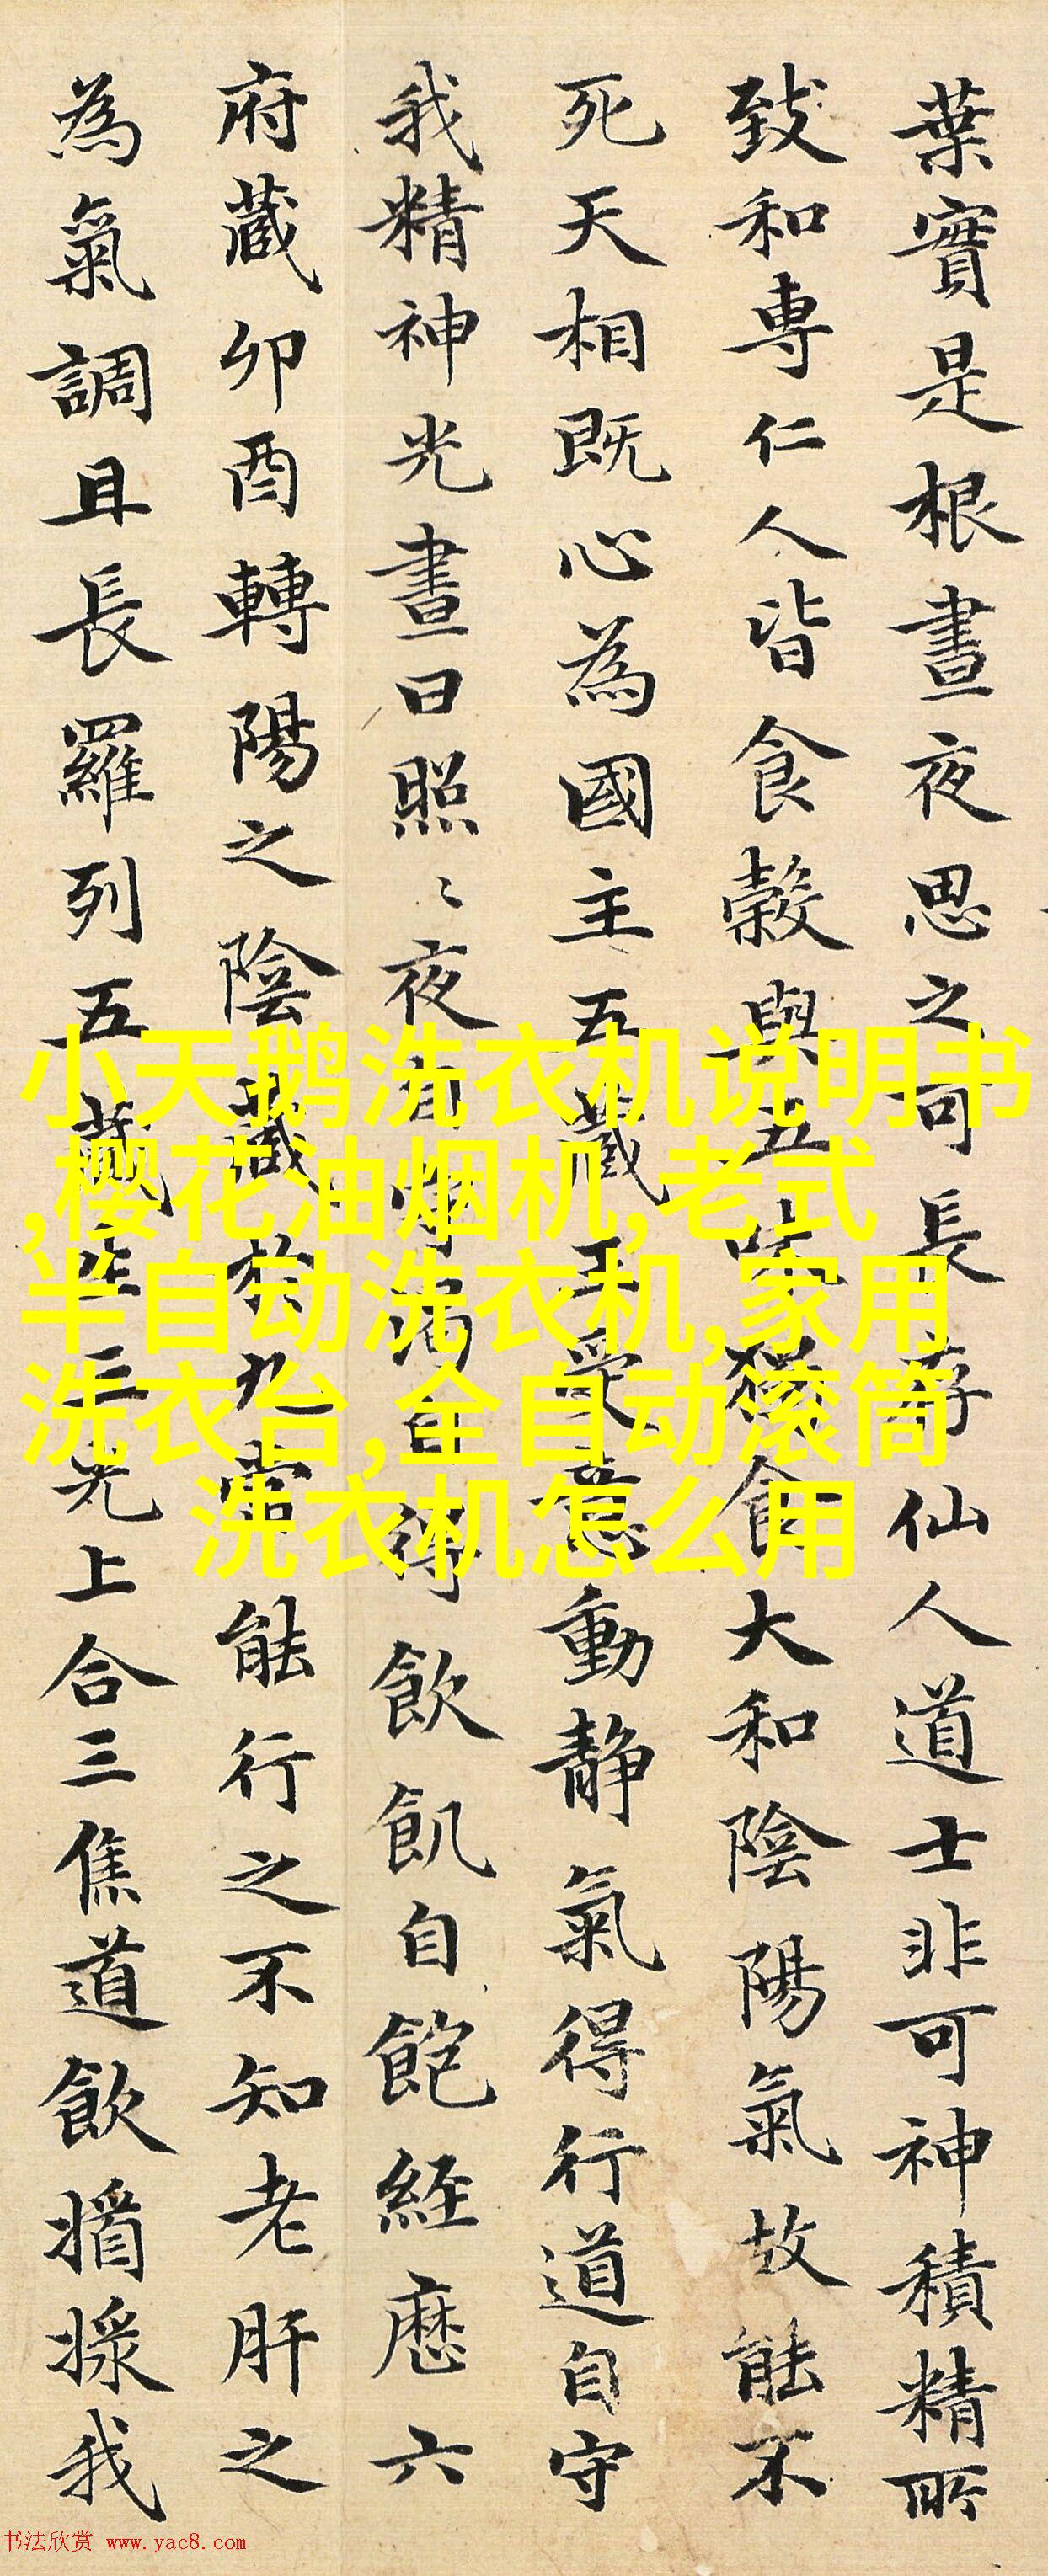 葉實是根晝夜思之可長存仙人道士非可神積精所
致和専仁人皆食穀與五味獨食大和陰陽氣故能不
死天相既心為國主五藏王受意動静氣得行道自守
我精神光晝日照〻夜自渴自得飲飢自飽經歷六
府蔵卯酉轉陽之陰藏於九常能行之不知老肝之
為氣調且長羅列五藏生三光上合三焦道飲我
小天鹅洗衣机说明书
,樱花油烟机,老式
半自动洗衣机,家用
洗衣台,全自动滚筒
洗衣机怎么用
书法欣赏 www.yac8.com